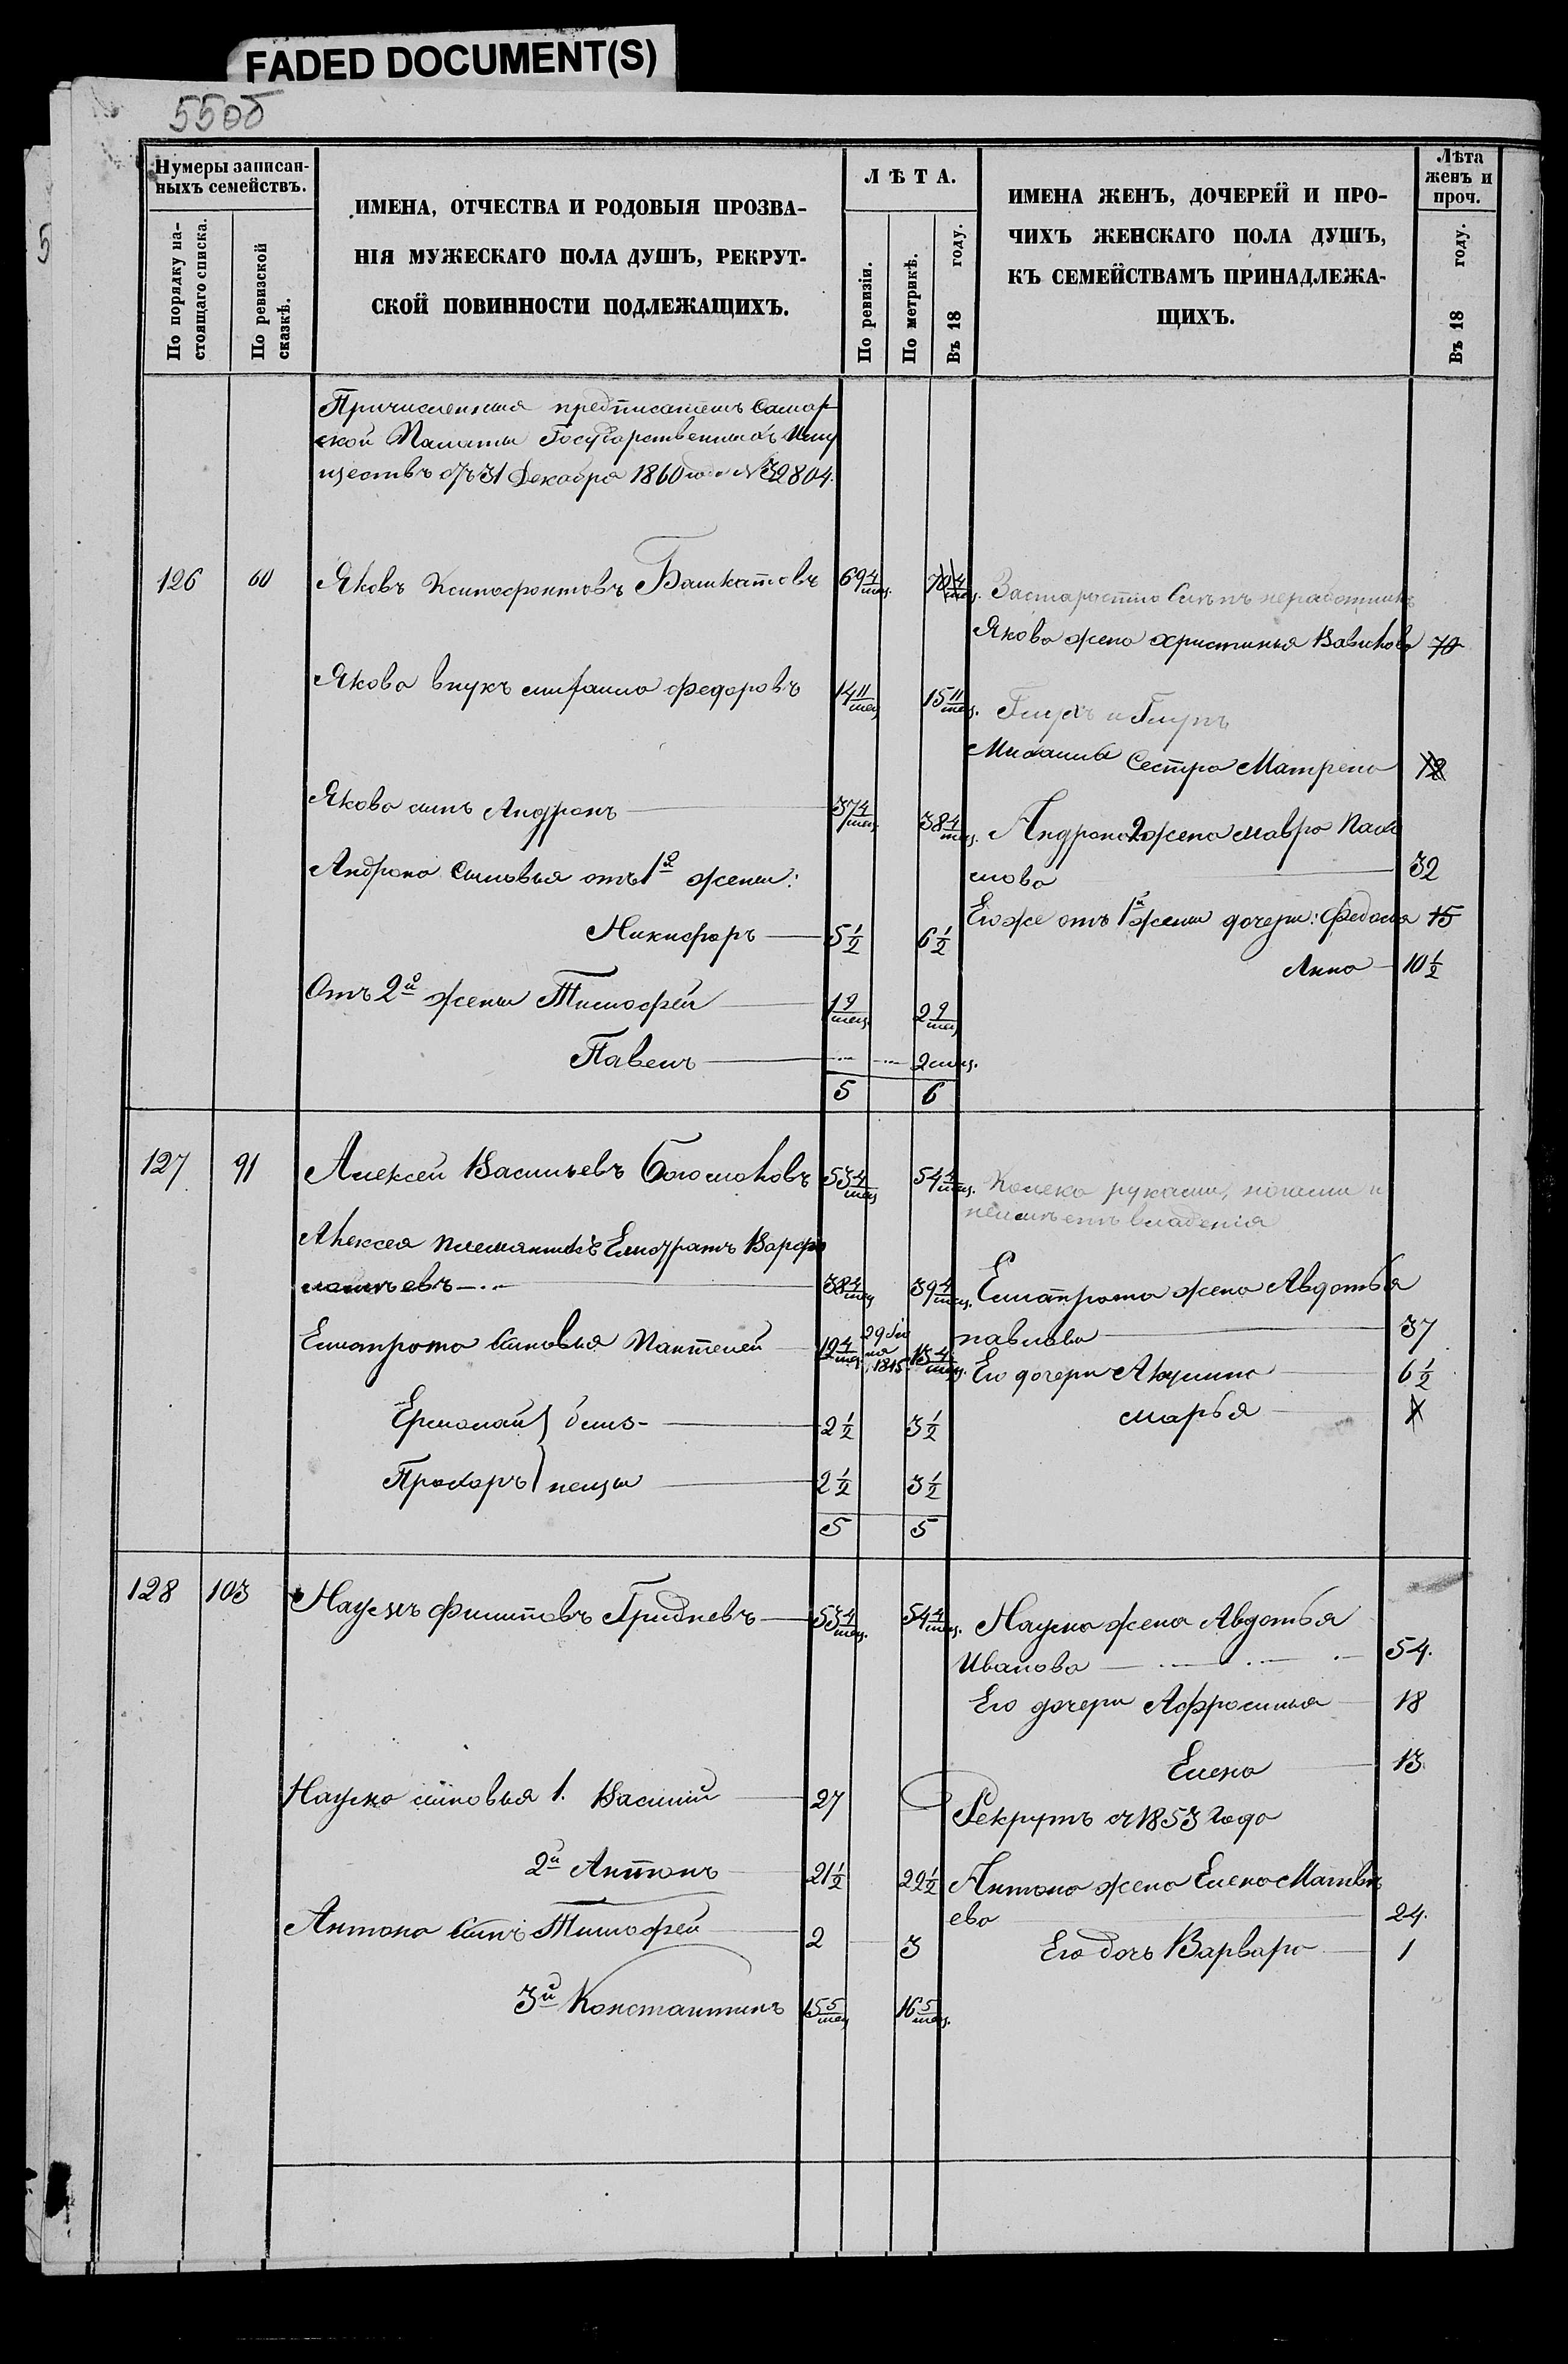 FADED DOCUMENT(S)
55об
5
Нумеры записан-
ныхъ семействъ.
По порядку на-
стоящаго списка.
По ревизской
сказкѣ.
ИМЕНА, ОТЧЕСТВА И РОДОВЫЯ ПРОЗВА-
НІЯ МУЖЕСКАГО ПОЛА ДУШЪ, РЕКРУТ-
СКОЙ ПОВИННОСТИ ПОДЛЕЖАЩИХЪ.
ЛѢТА.
По ревизіи.
По метрикѣ.
Въ 18 году.
ИМЕНА ЖЕНЪ, ДОЧЕРЕЙ И ПРО-
ЧИХЪ ЖЕНСКАГО ПОЛА ДУШЪ,
КЪ СЕМЕЙСТВАМЪ ПРИНАДЛЕЖА-
ЩИХЪ.
Лѣта
женъ и
проч.
Въ 18 году.
Причисленныя предписаніемъ Самар
ской Палаты Государственныхъ Иму
ществъ отъ 31 Декабря 1860 года № 32804.
126 60 Яковъ Ксинофонтовъ Башкатовъ 69 4/мец. 70 4/мец. За старостію неработникъ
Якова жена христинья 70
Якова внукъ михаила федоровъ 14 11/мец 15 11/мец. Глухъ и
Михаила Сестра Матрена 12
Якова сынъ Андронъ 37 4/мец 38 4/мец. Андрона 2 жена мавра Пав
лова 32
Андрона Сыновья отъ 1й жены:
Его же отъ 1й жены дочери: Федосья 15
Никифоръ 5 1/2 6 1/2
Анна 10 1/2
Отъ 2й жены Тимофей 1 9/мец 2 9/мец
Павелъ 2 мец.
5 6
127 91 Алексей Васильевъ Богомоловъ 53 4/мец 54 4/мец. Колека руками, ногами и
неимѣетъ владенія
Алексея племянникъ Варфо
ломѣевъ 38 4/мец 39 4/мец. жена Авдотья
павлова 37
Сыновья Пантелей 12 4/мец 29 1845 13 4/мец. Его дочери Акулина 6 1/2
марья
Ермолай } близ- 2 1/2 3 1/2
Прохоръ } нецы 2 1/2 3 1/2
5 5
128 103 Наумъ Филиповъ Гридневъ 53 4/мец. 54 4/мец. Наума жена Авдотья
Иванова 54.
Его дочери Афросинья 18
Елена 13
Наума сыновья 1. Василий 27 Рекрутъ с 1853 года
2й Антонъ 21 1/2 22 1/2 Антона жена Елена Матвѣ
ева 24.
Антона сынъ Тимофей 2 3 Его дочь Варвара 1
3й Константинъ 15 5/мец 16 5/мец.